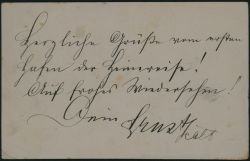 Herzliche Grüße vom ersten
Hafen der Heimreise!
Auf frohes Wiedersehen!
Dein Ernst